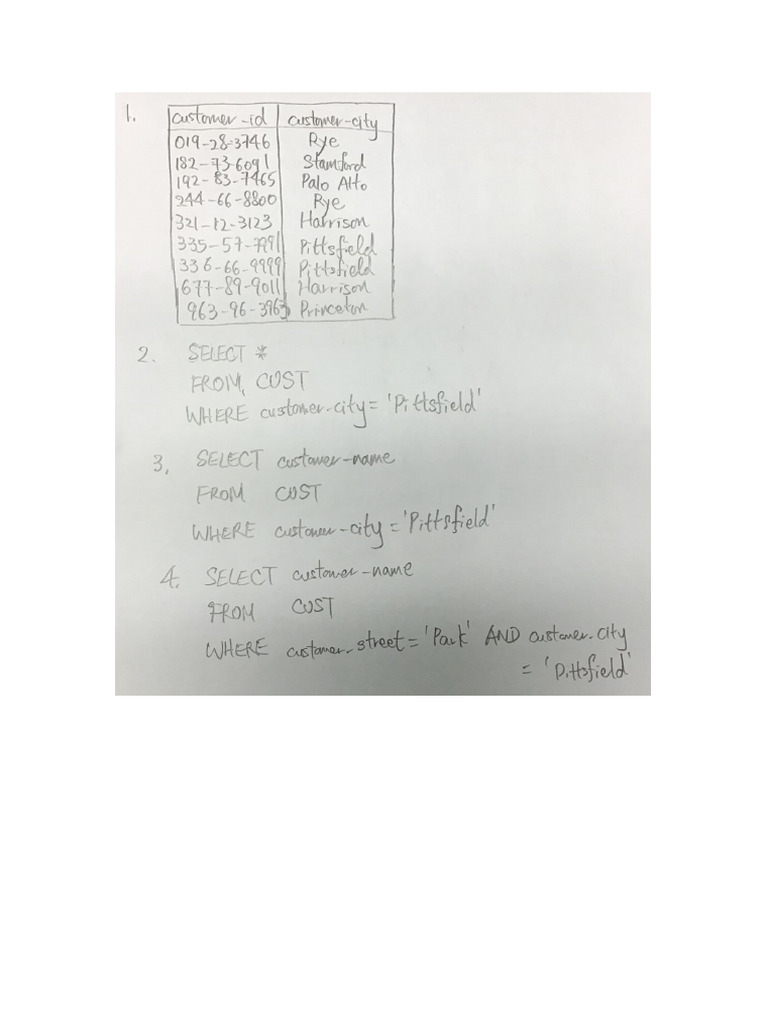 1. customer-id customer-city
019-28-3746 Rye
182-73-6091 Stamford
192-83-7465 Palo Alto
244-66-8800 Rye
321-12-3123 Harrison
335-57-7991 Pittsfield
336-66-9999 Pittsfield
677-89-9011 Harrison
963-96-3963 Princeton
2. SELECT *
FROM COST
WHERE customer-city = 'Pittsfield'
3. SELECT customer-name
FROM COST
WHERE customer-city = 'Pittsfield'
4. SELECT customer-name
FROM COST
WHERE customer-street = 'Park' AND customer-city
= 'Pittsfield'